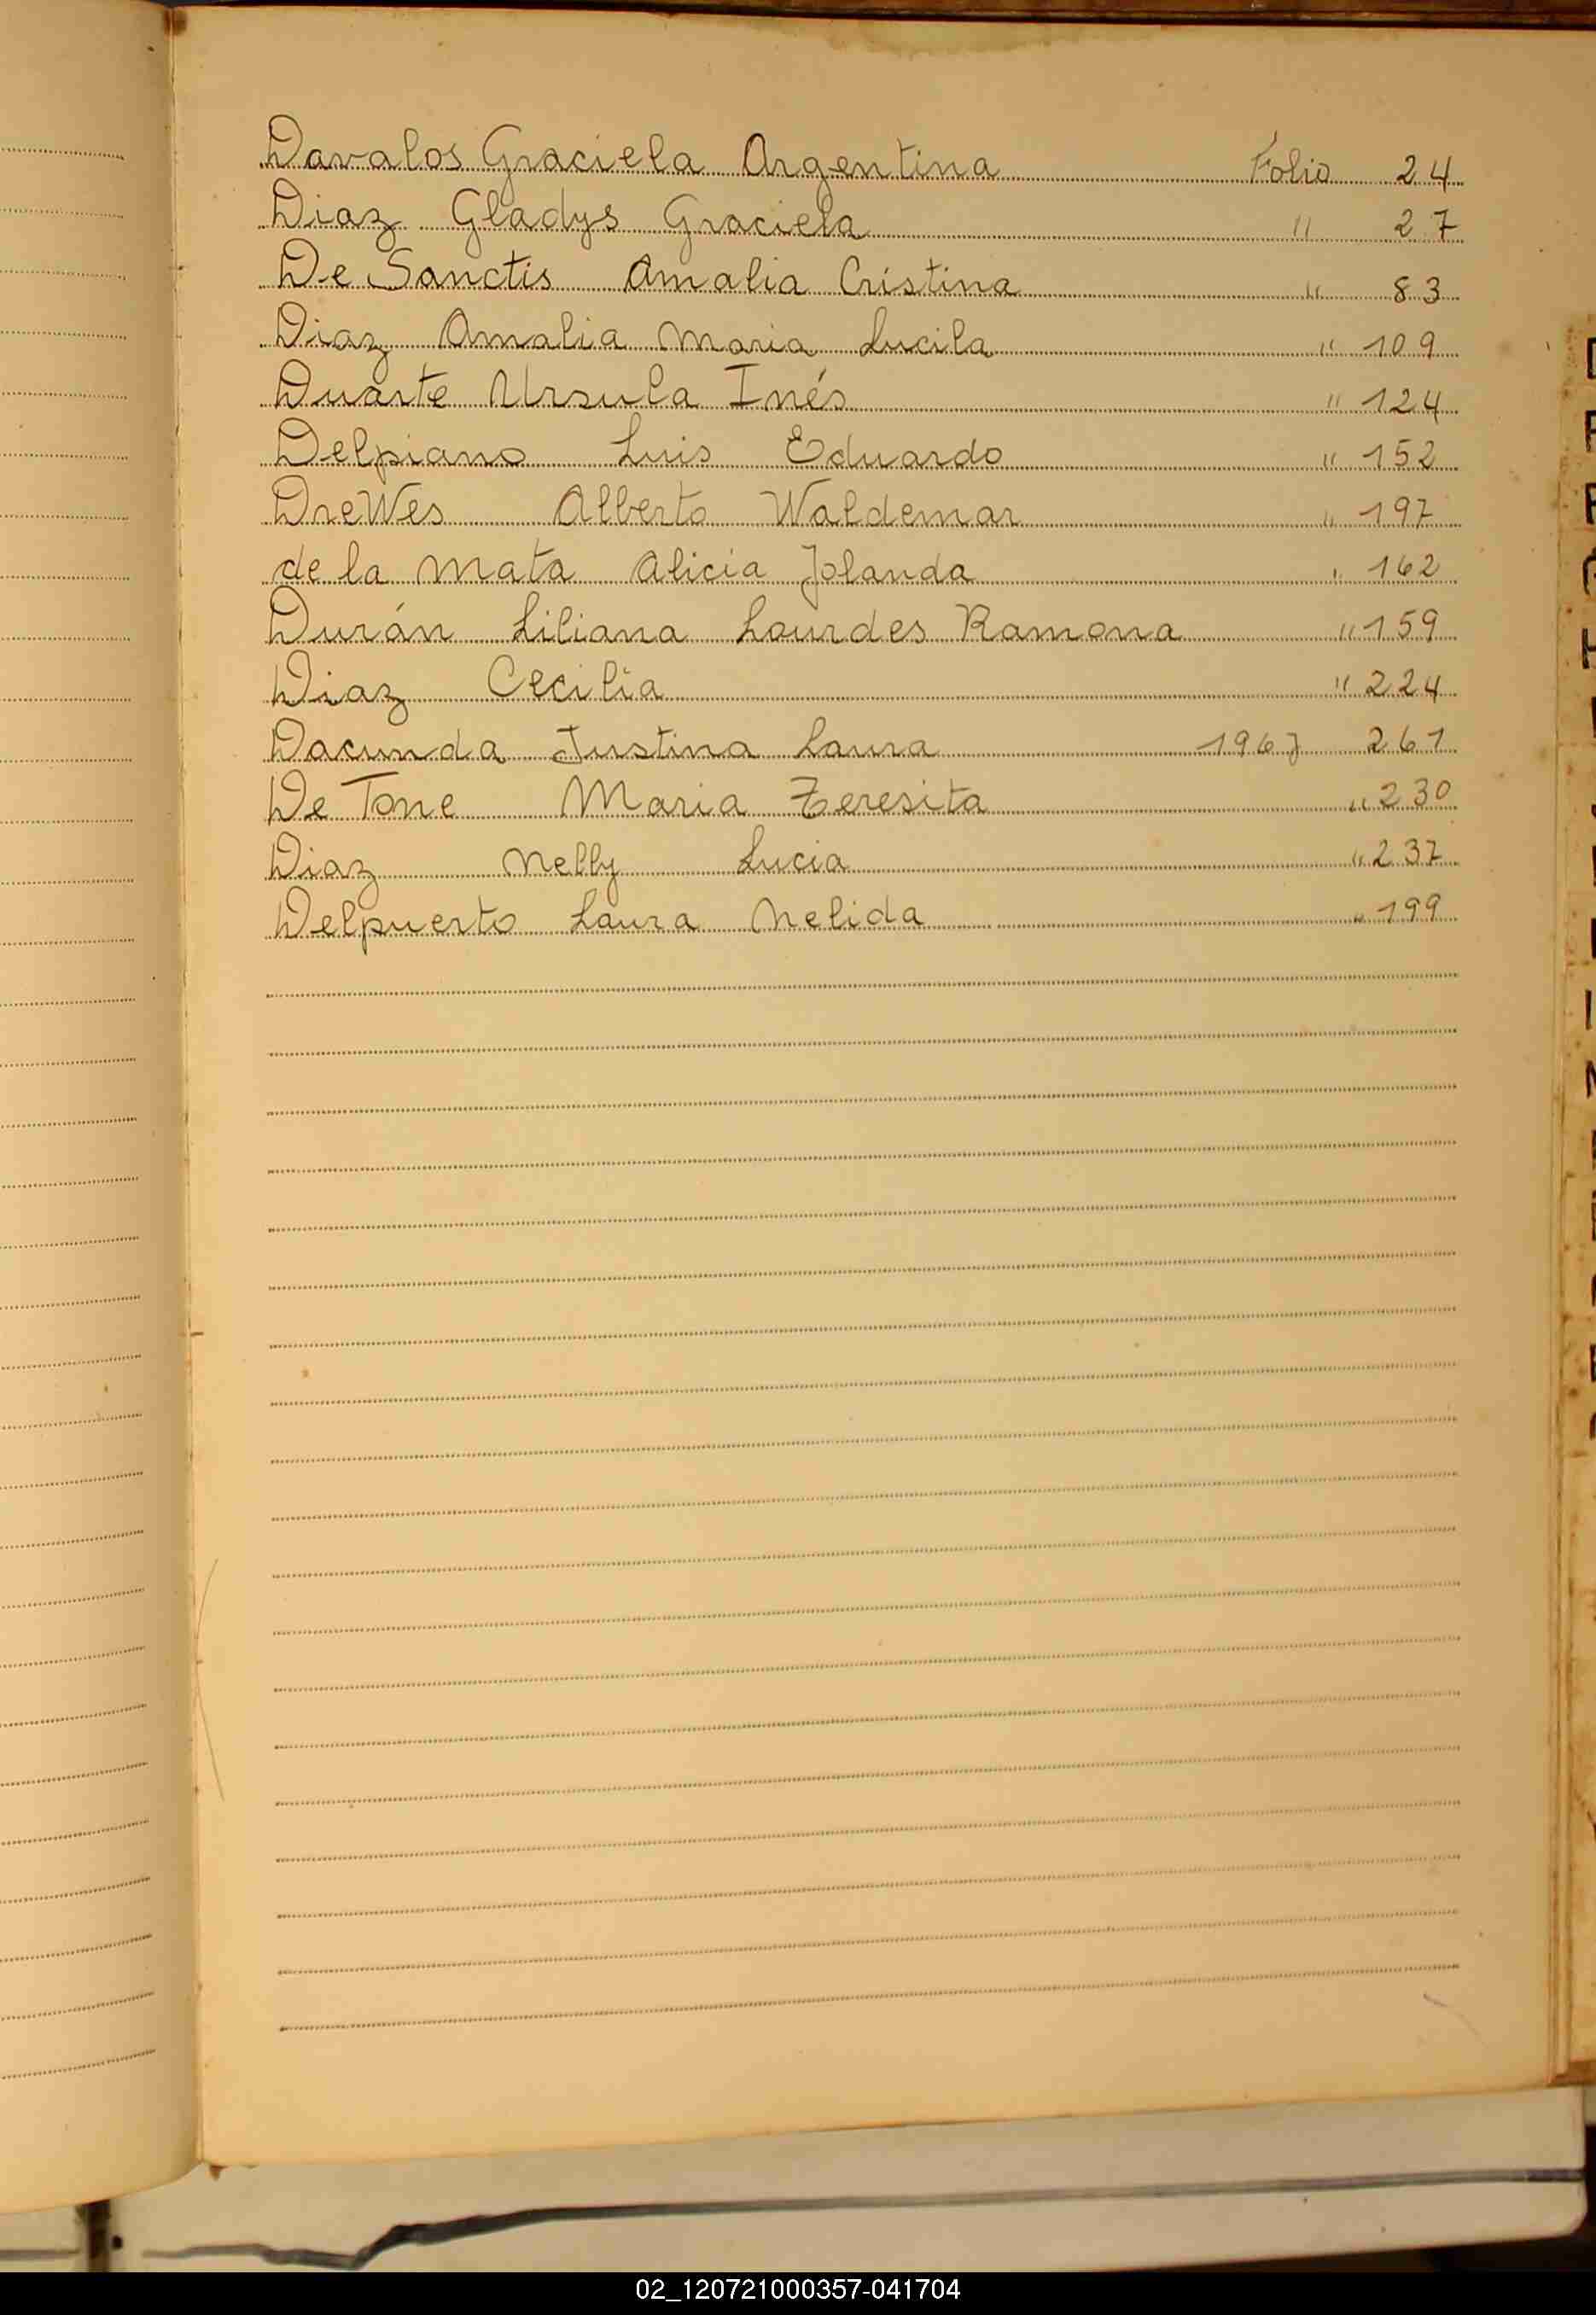 Davalos Graciela Argentina Folio 24
Diaz Gladys Graciela " 27
De Sanctis Amalia Cristina " 83
Diaz Amalia Maria Lucila " 109
Duarte Ursula Inés " 124
Delpiano Luis Eduardo " 152
DreWes Alberto Waldemar " 197
de la Mata Alicia Jolanda " 162
Durán Liliana Lourdes Ramona " 159
Diaz Cecilia " 224
Dacunda Justina Laura 1967 261
De Tone Maria Teresita " 230
Diaz Nelly Lucia " 237
Delpuerto Laura Nelida " 199
02_120721000357-041704